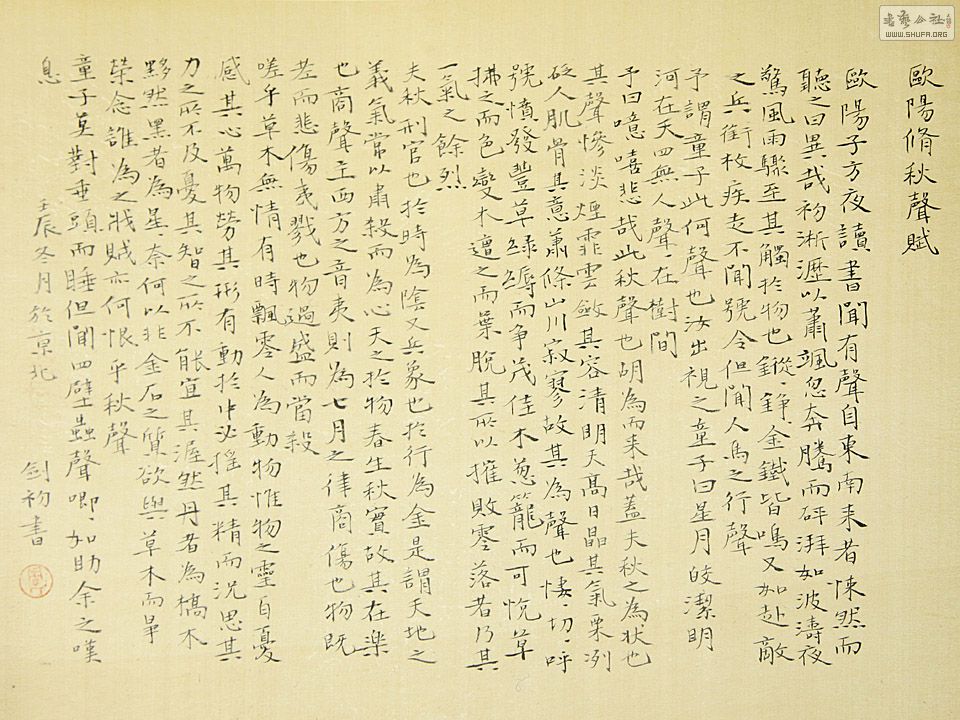 歐陽脩秋聲賦
歐陽子方夜讀書聞有聲自東南来者悚然而
聽之曰異哉初淅瀝以蕭颯忽奔騰而砰湃如波濤夜
驚風雨驟至其觸於物也鏦、錚、金鐵皆鳴又如赴敵
之兵銜枚疾走不聞號令但聞人馬之行聲
予謂童子此何聲也汝出視之童子曰星月皎潔明
河在天四無人聲、在樹間
予曰噫嘻悲哉此秋聲也胡為而来哉蓋夫秋之為状也
其聲慘淡煙霏雲斂其容清明天高日晶其氣栗冽
砭人肌骨其意蕭條山川寂寥故其為聲也悽、切、呼
號憤發豐草綠縟而争茂佳木葱籠而可悅草
拂之而色變木遭之而葉脫其所以摧敗零落者乃其
一氣之餘烈
夫秋刑官也於時為陰又兵象也於行為金是謂天地之
義氣常以肅殺而為心天之於物春生秋實故其在樂
也商聲主西方之音夷則為七月之律商傷也物既
老而悲傷夷戮也物過盛而當殺
嗟乎草木無情有時飄零人為動物惟物之靈百憂
感其心萬物勞其形有動於中必摇其精而况思其
力之所不及憂其智之所不能宜其渥然丹者為槁木
黟然黑者為星奈何以非金石之質欲與草木而爭
榮念誰為之戕賊亦何恨乎秋聲
童子莫對垂頭而睡但聞四壁蟲聲唧、如助余之嘆
息
壬辰冬月於京北
劍初書
書藝公社
WWW.SHUFA.ORG